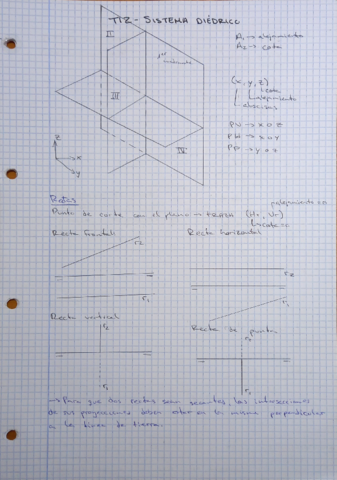 T12 - SISTEMA DIÉDRICO
A₁ → alejamiento
A₂ → cota
II
1er cuadrante
III
IV
(x, y, z)
cota
alejamiento
abscisas
PV → x o z
PH → x o y
PP → y o z
z
x
y
Rectas
alejamiento=0
Punto de corte con el plano → TRAZA (Hr, Vr)
cota=0
Recta frontal
Recta horizontal
r₂
r₁
r₂
r₁
Recta vertical
Recta de punta
r₂
r₁
r₂
r₁
→ Para que dos rectas sean secantes, las intersecciones
de sus proyecciones deben estar en la misma perpendicular
a la línea de tierra.